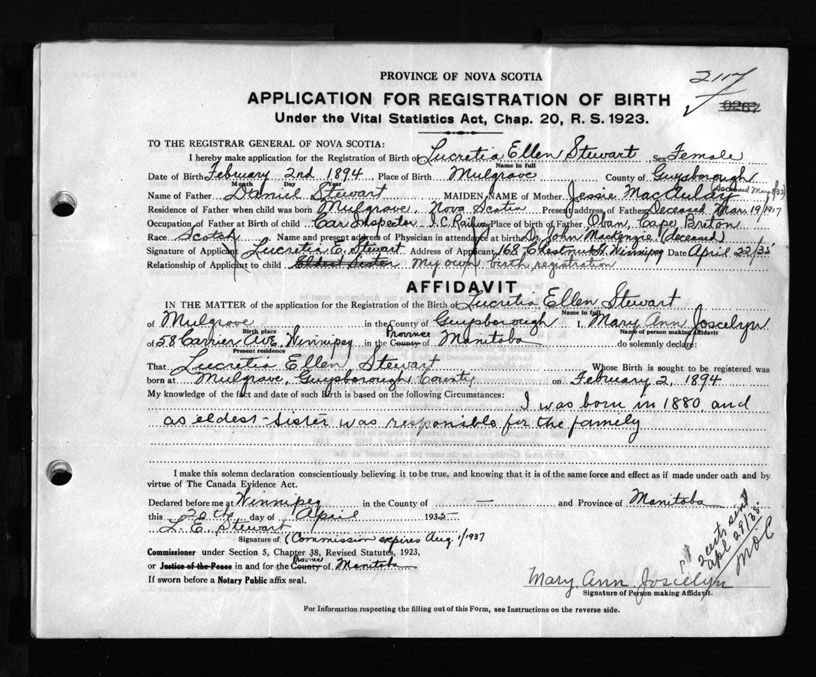 PROVINCE OF NOVA SCOTIA
2117
APPLICATION FOR REGISTRATION OF BIRTH
Under the Vital Statistics Act, Chap. 20, R. S. 1923.
TO THE REGISTRAR GENERAL OF NOVA SCOTIA:
I hereby make application for the Registration of Birth of Lucretia Ellen Stewart Sex Female
Name in full
Date of Birth February 2nd 1894 Place of Birth Mulgrave County of Guysborough
Month Day Year
Name of Father Daniel Stewart MAIDEN NAME of Mother Jessie MacAulay
Residence of Father when child was born Mulgrave, Nova Scotia Present address of Father Deceased Mar. 19 1917
Occupation of Father at Birth of child Car Inspector I.C. Railway Place of birth of Father Oban, Cape Breton
Race Scotch Name and present address of Physician in attendance at birth Dr John MacKenzie (deceased)
Signature of Applicant Lucretia E. Stewart Address of Applicant 168 Chestnut St. Winnipeg Date April 22/35
Relationship of Applicant to child Eldest Sister My own birth registration
AFFIDAVIT
IN THE MATTER of the application for the Registration of the Birth of Lucretia Ellen Stewart
Name in full
of Mulgrave in the County of Guysborough I, Mary Ann Joscelyn
Birth place Name of person making Affidavit
of 58 Carrier Ave, Winnipeg in the County Province of Manitoba do solemnly declare:
Present residence
That Lucretia Ellen Stewart Whose Birth is sought to be registered was
born at Mulgrave, Guysborough County on February 2, 1894
My knowledge of the fact and date of such Birth is based on the following Circumstances: I was born in 1880, and
as eldest sister was responsible for the family
I make this solemn declaration conscientiously believing it to be true, and knowing that it is of the same force and effect as if made under oath and by
virtue of The Canada Evidence Act.
Declared before me at Winnipeg in the County of — and Province of Manitoba
this 20th day of April 1935
L. E. Stewart
Signature of (Commission expires Aug. 1/1937
Commissioner under Section 5, Chapter 38, Revised Statutes, 1923,
or Justice of the Peace in and for the County Province of Manitoba
If sworn before a Notary Public affix seal.
2 cents
Mary Ann Joscelyn
Signature of Person making Affidavit.
For Information respecting the filling out of this Form, see Instructions on the reverse side.